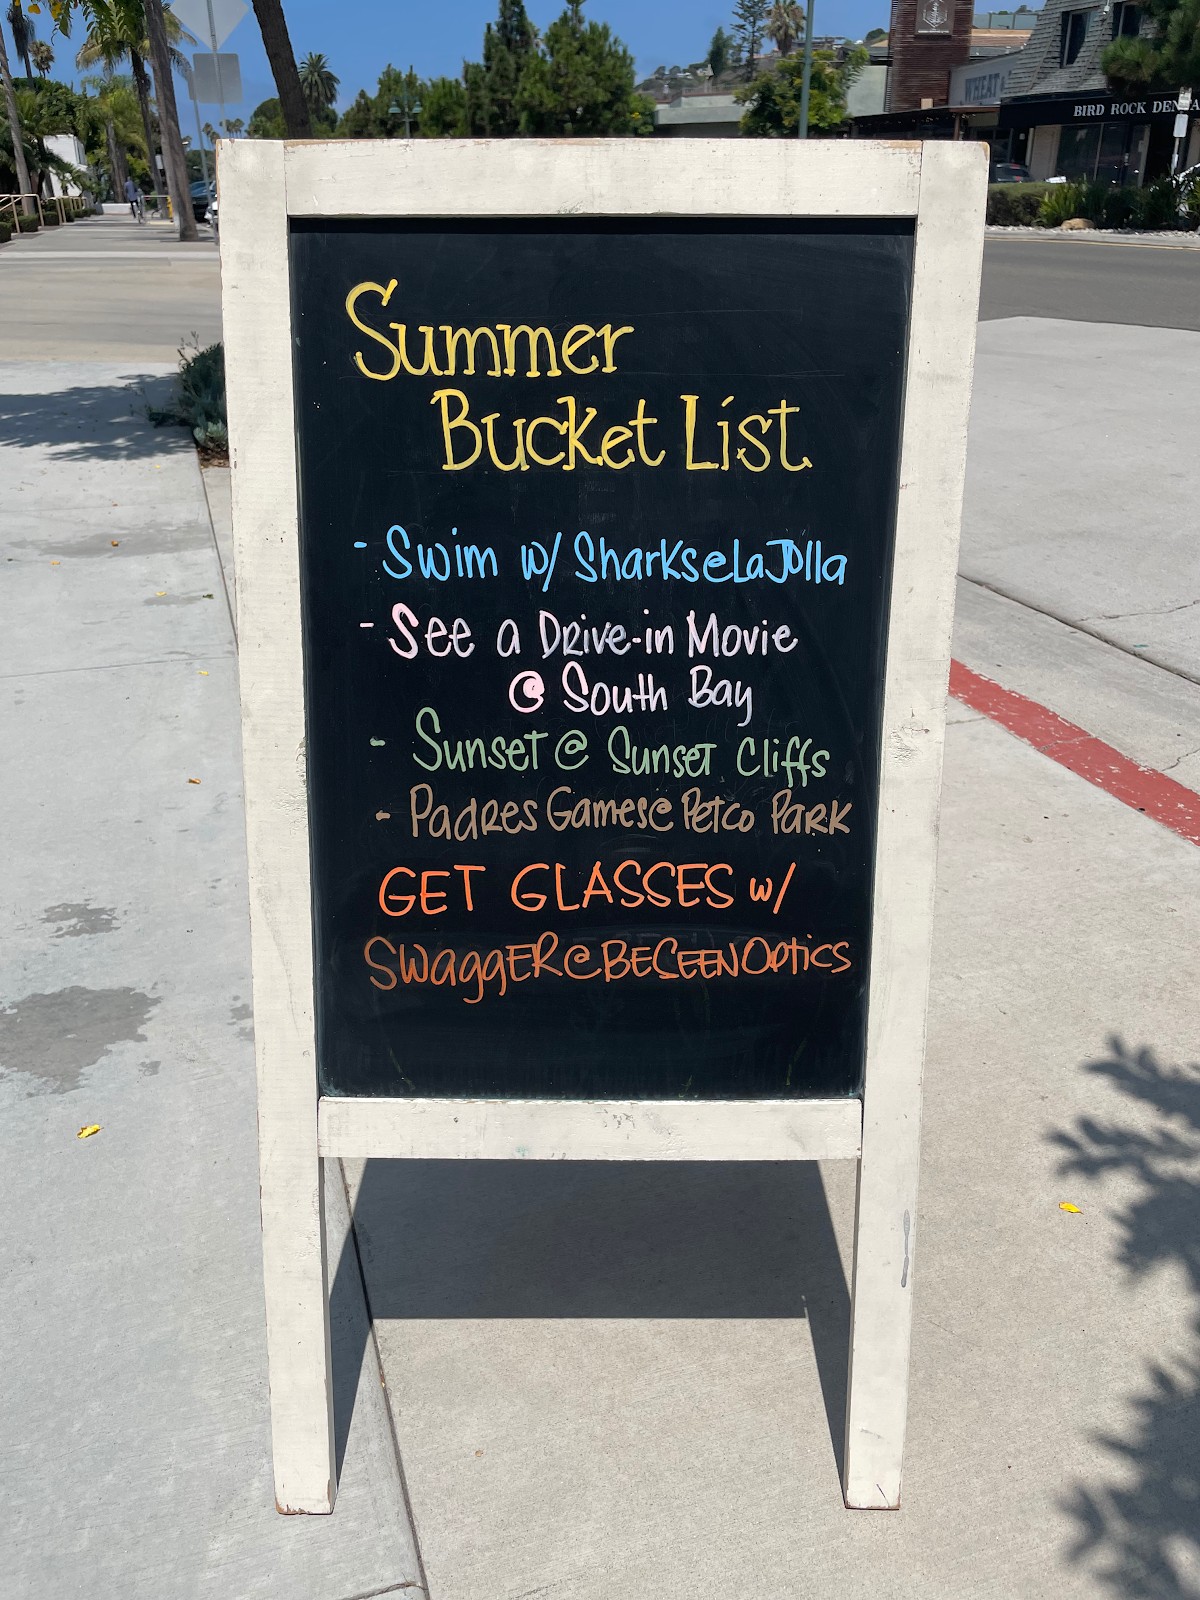 WHEAT
BIRD ROCK DENTA
Summer
Bucket List
- Swim w/ Sharks@LaJolla
- See a Drive-in Movie
@ South Bay
- Sunset @ Sunset Cliffs
- Padres Games@ Petco Park
GET GLASSES w/
SWaggER@BESEENOptics